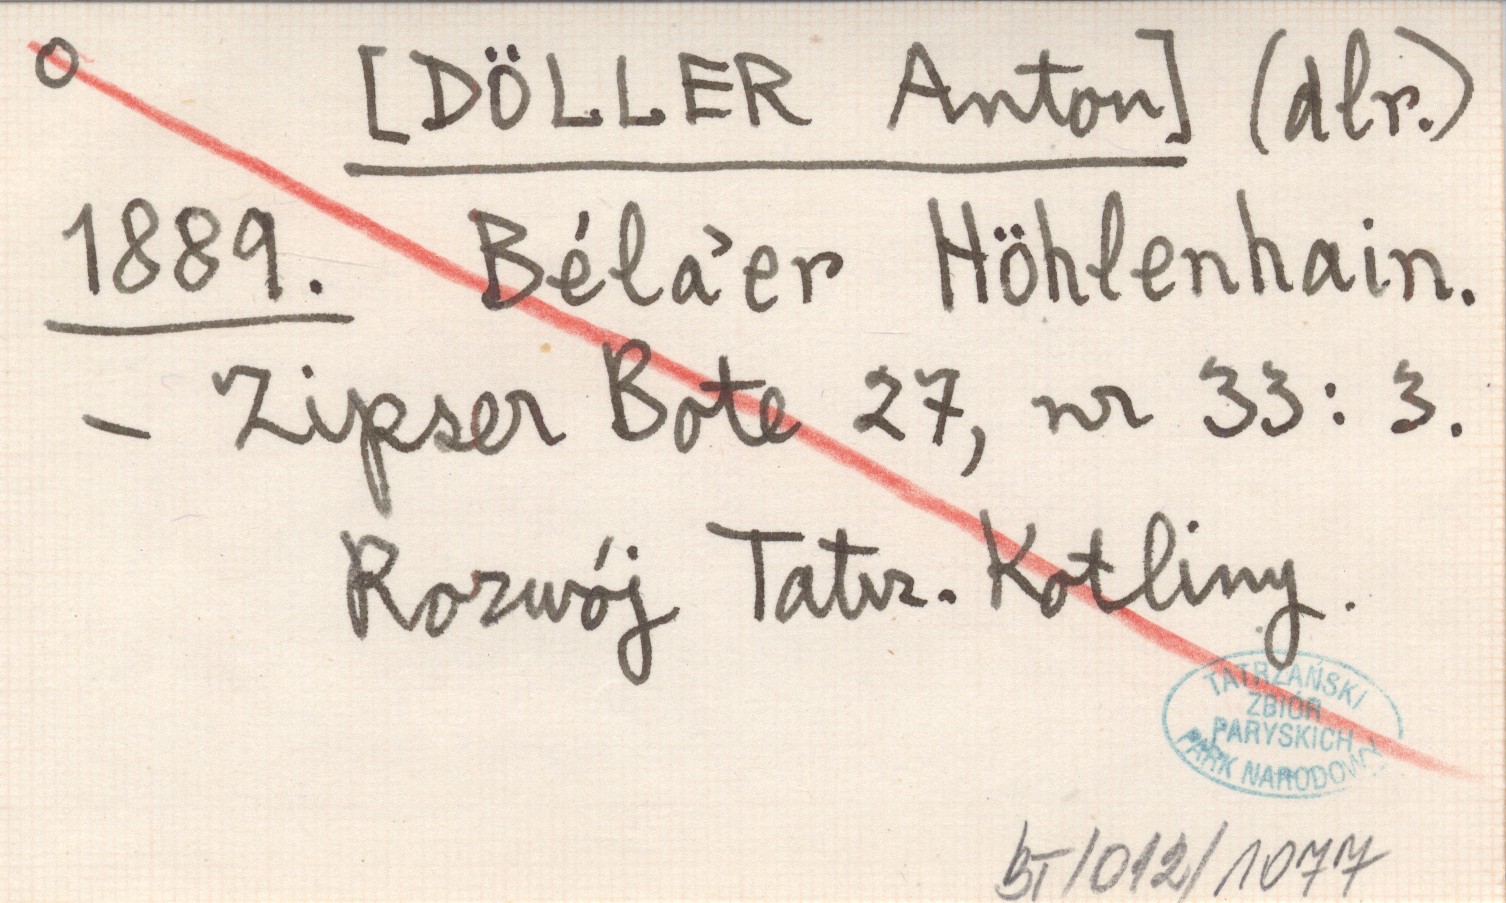 [DÖLLER Anton] (dlr.)
1889. Béla'er Höhlenhain.
- Zipser Bote 27, nr 33: 3.
Rozwój Tatrz. Kotliny.
TATRZAŃSKI
ZBIÓR
PARYSKICH
PARK NARODOWY
BT/012/1077